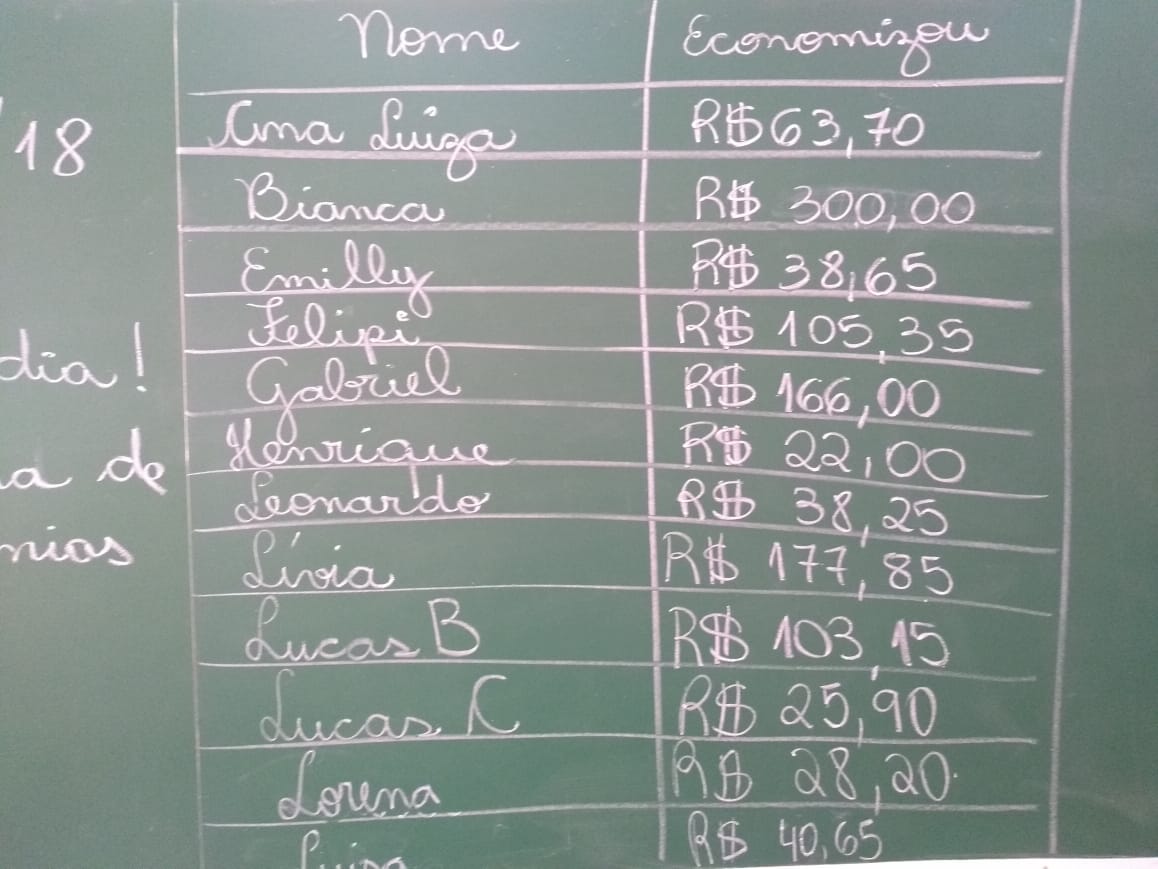 Nome Economizou
18
Ana Luiza R$ 63,70
Bianca R$ 300,00
Emilly R$ 38,65
Felipi R$ 105,35
dia!
Gabriel R$ 166,00
a de
Henrique R$ 22,00
Leonardo R$ 38,25
nias
Lívia R$ 177,85
Lucas B R$ 103,15
Lucas C R$ 25,90
Lorena R$ 28,20
R$ 40,65